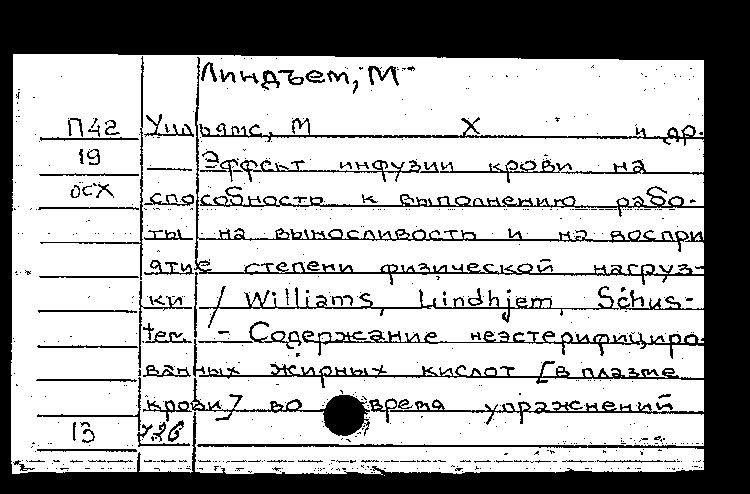 Линдъем, М
П42 Уильямс, М Х и др.
19 Эффект инфузии крови на
осх способность к выполнению рабо-
ты на выносливость и на воспри
ятие степени физической нагруз-
ки / Williams, Lindhjem, Schus-
ter. – Содержание неэстерифициро-
ванных жирных кислот [в плазме
крови] во время упражнений
13 726